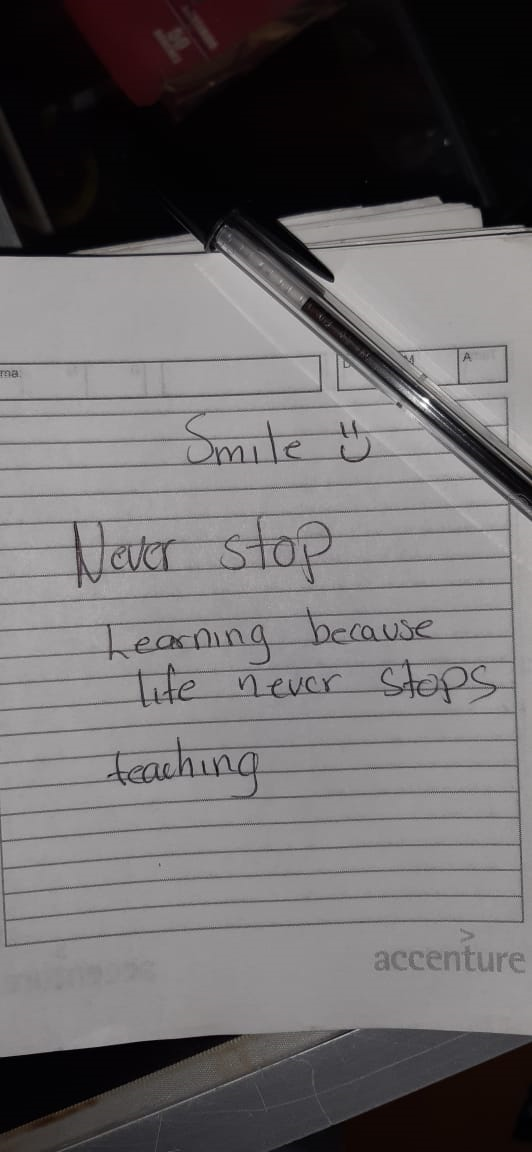 ma:
A
Smile :)
Never stop
Learning because
life never stops
teaching
accenture